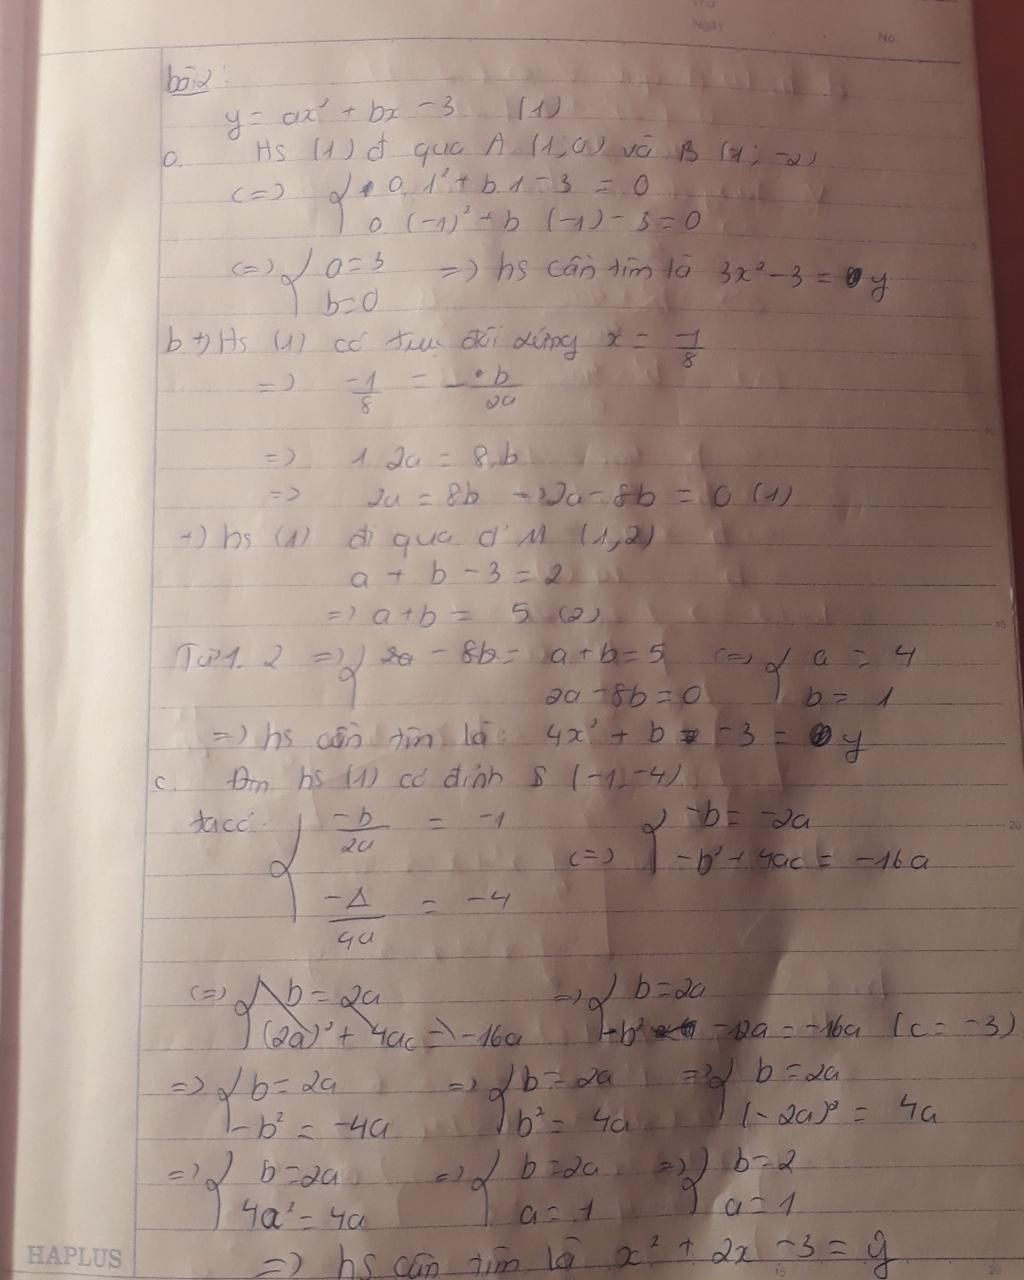 Thứ
Ngày
No.
bài 2:
y = ax² + bx - 3 (1)
a. Hs (1) đ qua A (1; 0) và B (-1; -2)
(=) { a.1² + b.1 - 3 = 0
a (-1)² + b (-1) - 3 = 0
(=) { a = 3 =) hs cần tìm là 3x² - 3 = y
b = 0
b. +) Hs (1) có trục đối xứng x = -1/8
=) -1/8 = -b/2a
=) 1 2a = 8.b
=) 2a = 8b =) 2a - 8b = 0 (1)
+) hs (1) đi qua đ' M (1, 2)
a + b - 3 = 2
=) a + b = 5 (2)
Từ 1. 2 =) { 2a - 8b = a + b = 5 (=) { a = 4
2a - 8b = 0 b = 1
=) hs cần tìm là: 4x² + b - 3 = y
c. hs (1) có đỉnh S (-1, -4)
ta có: { -b/2a = -1 (=) { -b = -2a
-Δ/4a = -4 -b² + 4ac = -16a
(=) { b = 2a =) { b = 2a
(2a)² + 4ac = -16a -b² - 12a = -16a (c = -3)
=) { b = 2a =) { b = 2a =) { b = 2a
-b² = -4a b² = 4a (-2a)² = 4a
=) { b = 2a =) { b = 2a =) { b = 2
4a² = 4a a = 1 a = 1
=) hs cần tìm là x² + 2x - 3 = y
HAPLUS